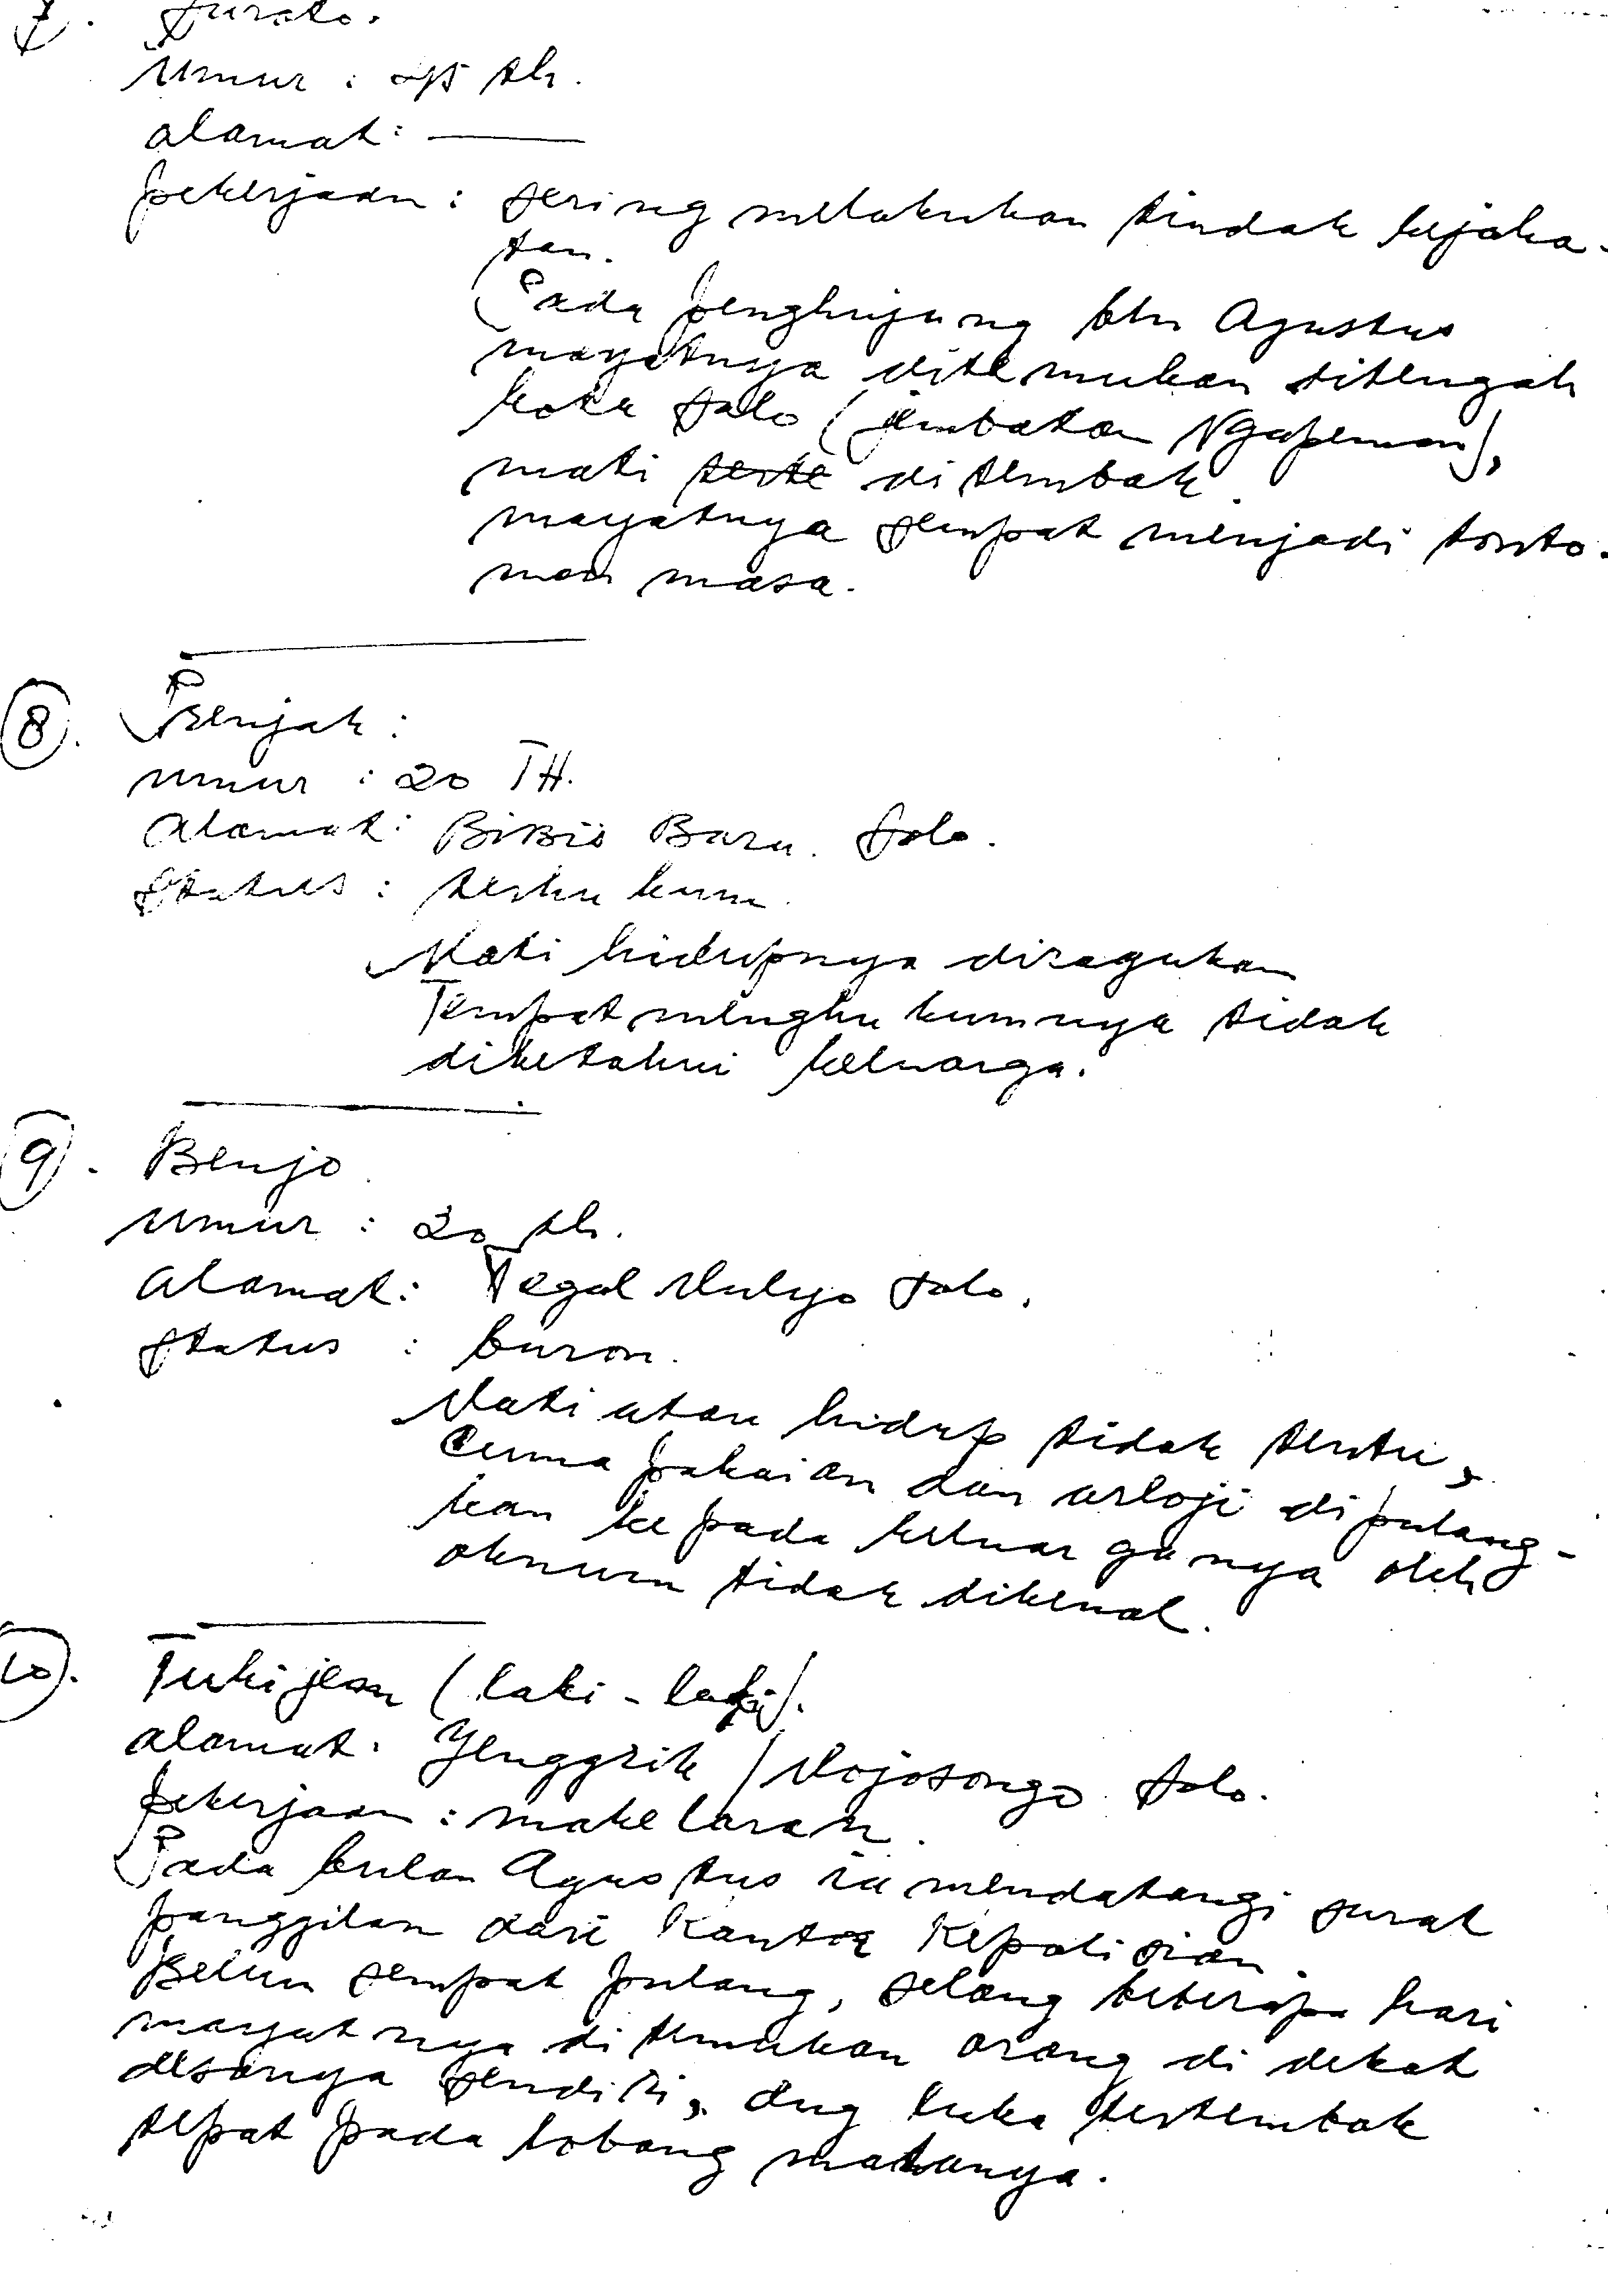 7. Surato.
Umur : 45 th.
alamat : ——
pekerjaan : sering melakukan tindak kejaha-
tan.
Pada penghujung bln Agustus
mayatnya ditemukan ditengah
kota Solo (jembatan Ngapeman),
mati ditembak.
mayatnya sempat menjadi tonto-
nan masa.
8. Prenjak :
umur : 20 TH.
Alamat : BiBis Baru. Solo.
Status : terhukum.
Mati hidupnya diragukan
Tempat menghukumnya tidak
diketahui keluarga.
9. Benjo
umur : 20 th.
Alamat : Tegal Mulyo Solo.
Status : buron.
Mati atau hidup tidak tentu,
Cuma pakaian dan arloji dipulang-
kan kepada keluarganya oleh
oknum tidak dikenal.
10. Tukijan (laki-laki).
alamat : Jenggrik / Mojosongo Solo.
pekerjaan : makelaran.
Pada bulan Agustus ia mendatangi surat
panggilan dari Kantor Kepolisian.
Belum sempat pulang, selang beberapa hari
mayatnya ditemukan orang di dekat
desanya sendiri, dng luka tertembak
tepat pada lobang matanya.